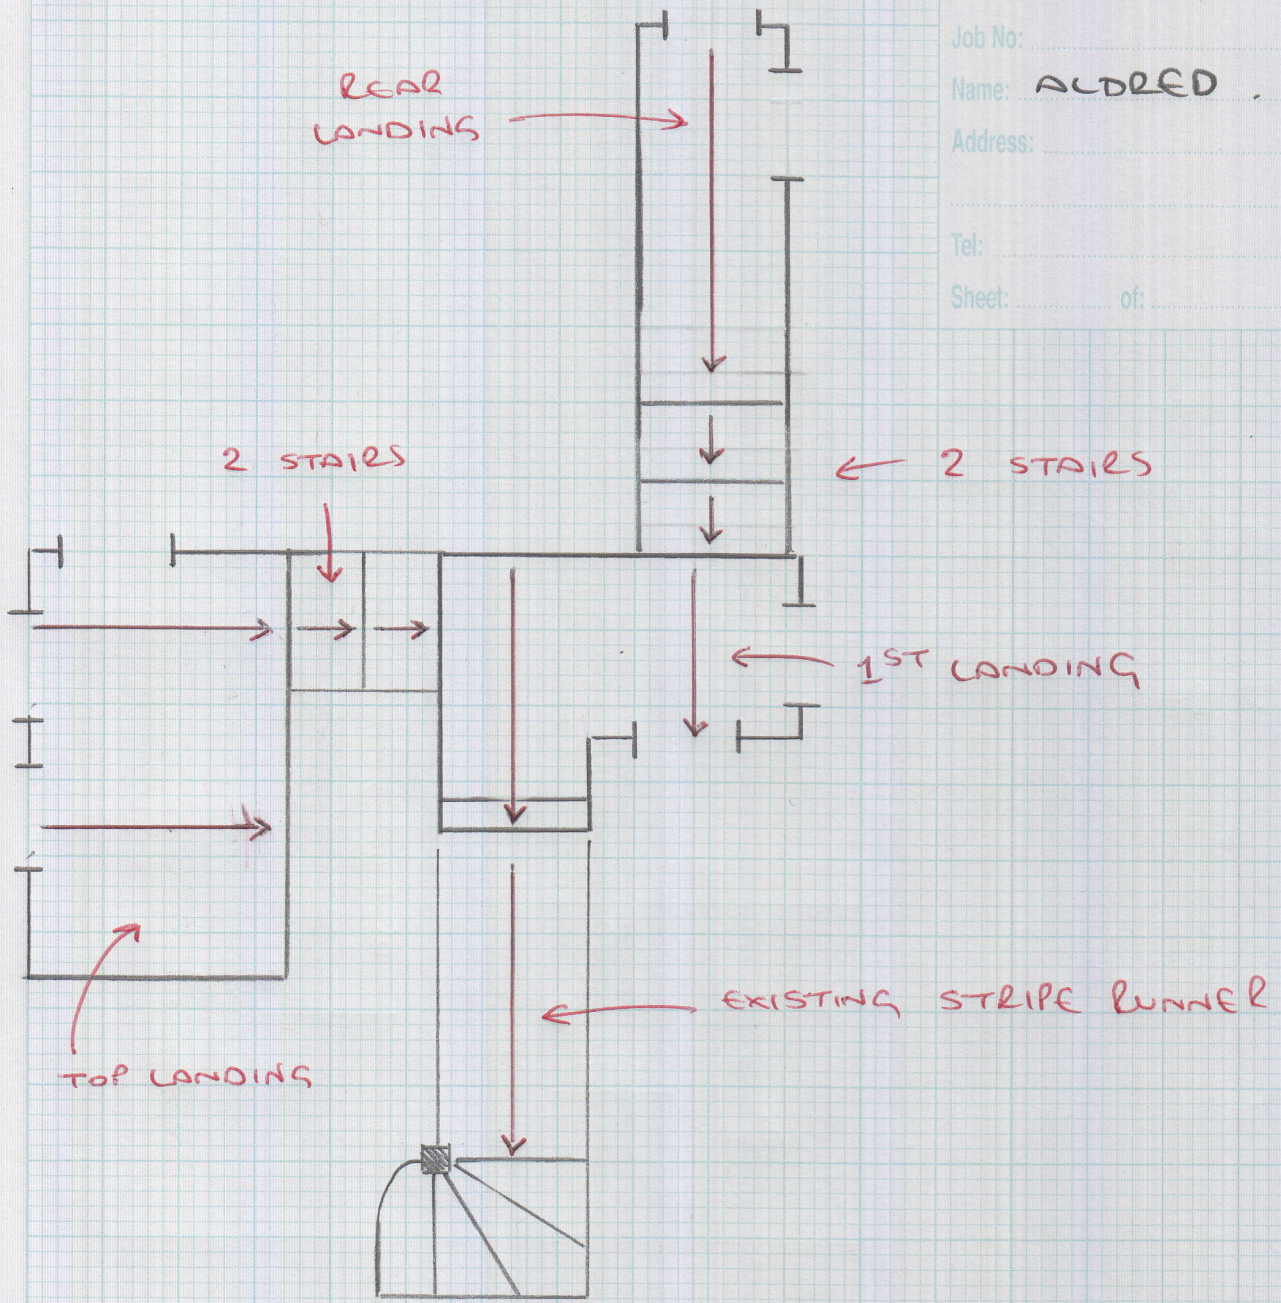 Job No:
Name: ALDRED .
Address:
Tel:
Sheet: of:
REAR
LANDING
2 STAIRS
2 STAIRS
1ST LANDING
EXISTING STRIPE RUNNER
TOP LANDING